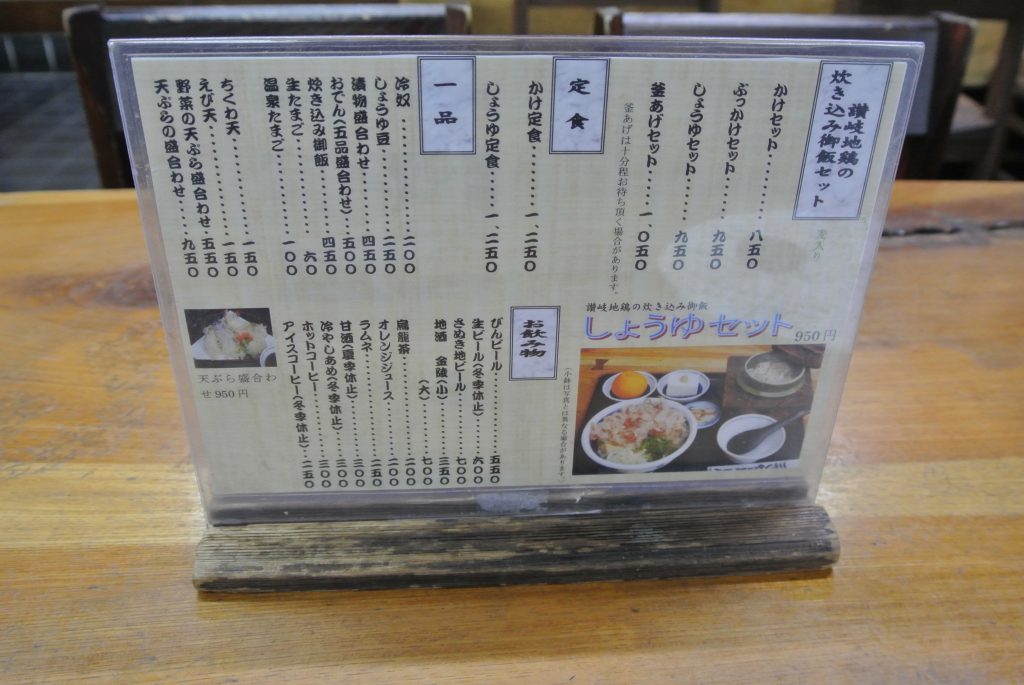 讃岐地鶏の
炊き込み御飯セット
かけセット・・・・・・・・・八五〇
ぶっかけセット・・・・・・九五〇
しょうゆセット・・・・・・九五〇
釜あげセット・・・・・一、〇五〇
釜あげは十分程お待ち頂く場合があります。
定食
かけ定食・・・・・・・・一、二五〇
しょうゆ定食・・・・・・一、二五〇
一品
冷奴・・・・・・・・・・・・二〇〇
しょうゆ豆・・・・・・・・二五〇
漬物盛合わせ・・・・・・四五〇
おでん(五品盛合わせ)・・五〇〇
炊き込み御飯・・・・・・四五〇
生たまご・・・・・・・・・・六〇
温泉たまご・・・・・・・・一〇〇
ちくわ天・・・・・・・・・・一五〇
えび天・・・・・・・・・・・一五〇
野菜の天ぷら盛合わせ・・五五〇
天ぷらの盛合わせ・・・・九五〇
讃岐地鶏の炊き込み御飯
しょうゆセット 950円
(小鉢は写真とは異なる場合があります。)
お飲み物
びんビール・・・・・・・・五五〇
生ビール(冬季休止)・・・六〇〇
さぬき地ビール・・・・・・七〇〇
地酒 金陵(小)・・・・・・三五〇
(大)・・・・・・七〇〇
烏龍茶・・・・・・・・・・・二〇〇
オレンジジュース・・・・二〇〇
ラムネ・・・・・・・・・・・二五〇
甘酒(夏季休止)・・・・・三〇〇
冷やしあめ(冬季休止)・・三〇〇
ホットコーヒー・・・・・・三〇〇
アイスコーヒー(冬季休止)・・三五〇
天ぷら盛合わ
せ950円